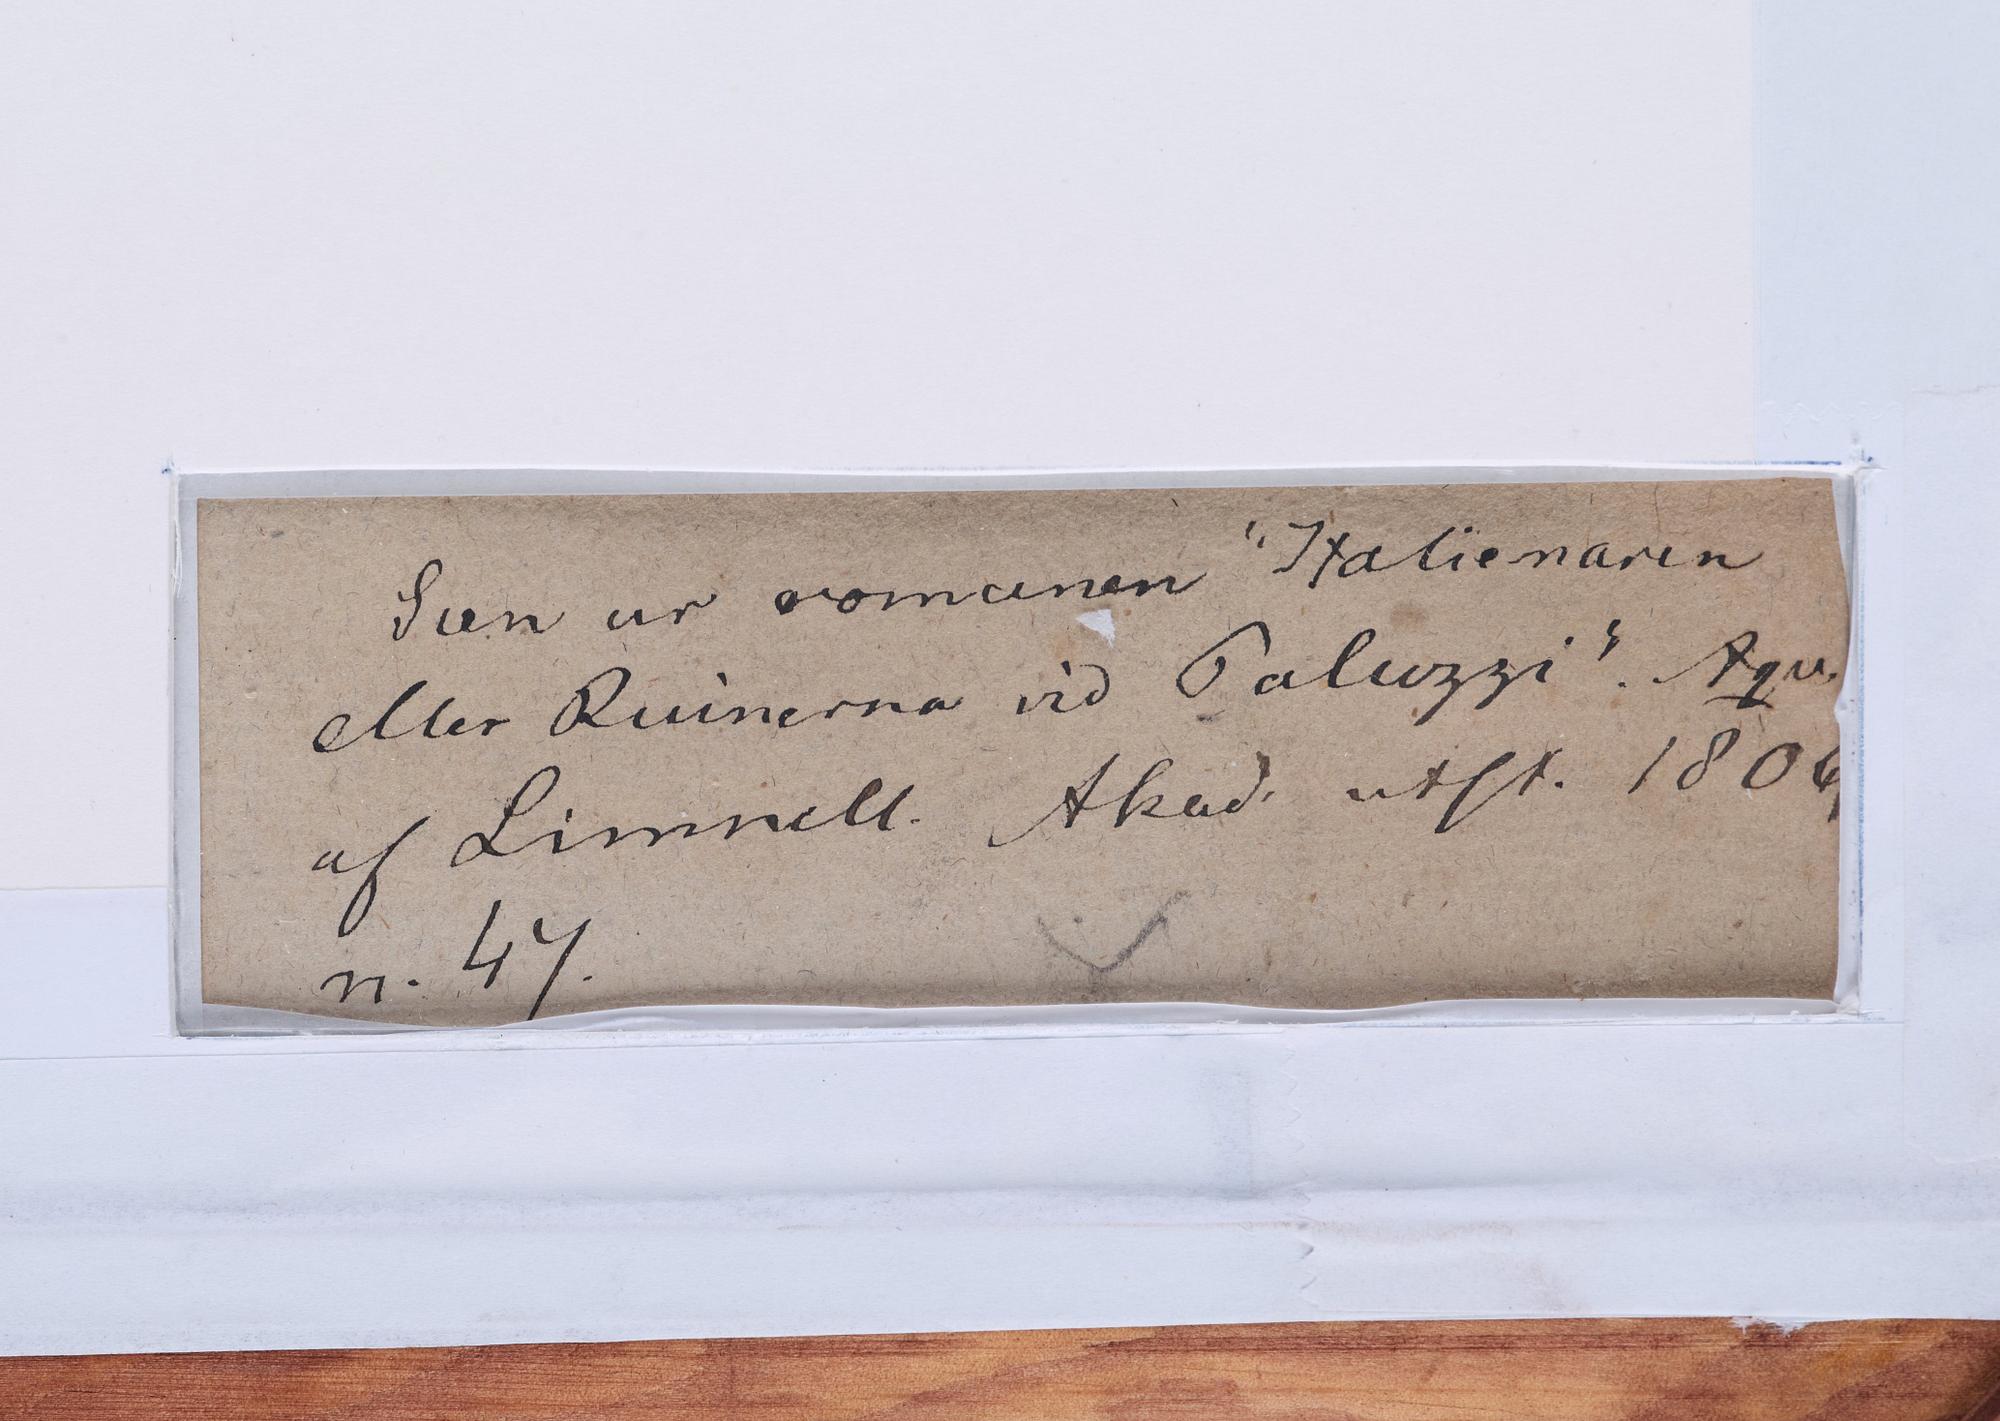 Scen ur romanen "Italienaren
eller Ruinerna vid Paluzzi". Aqu.
af Limnell. Akad. utst. 1806
n. 47.